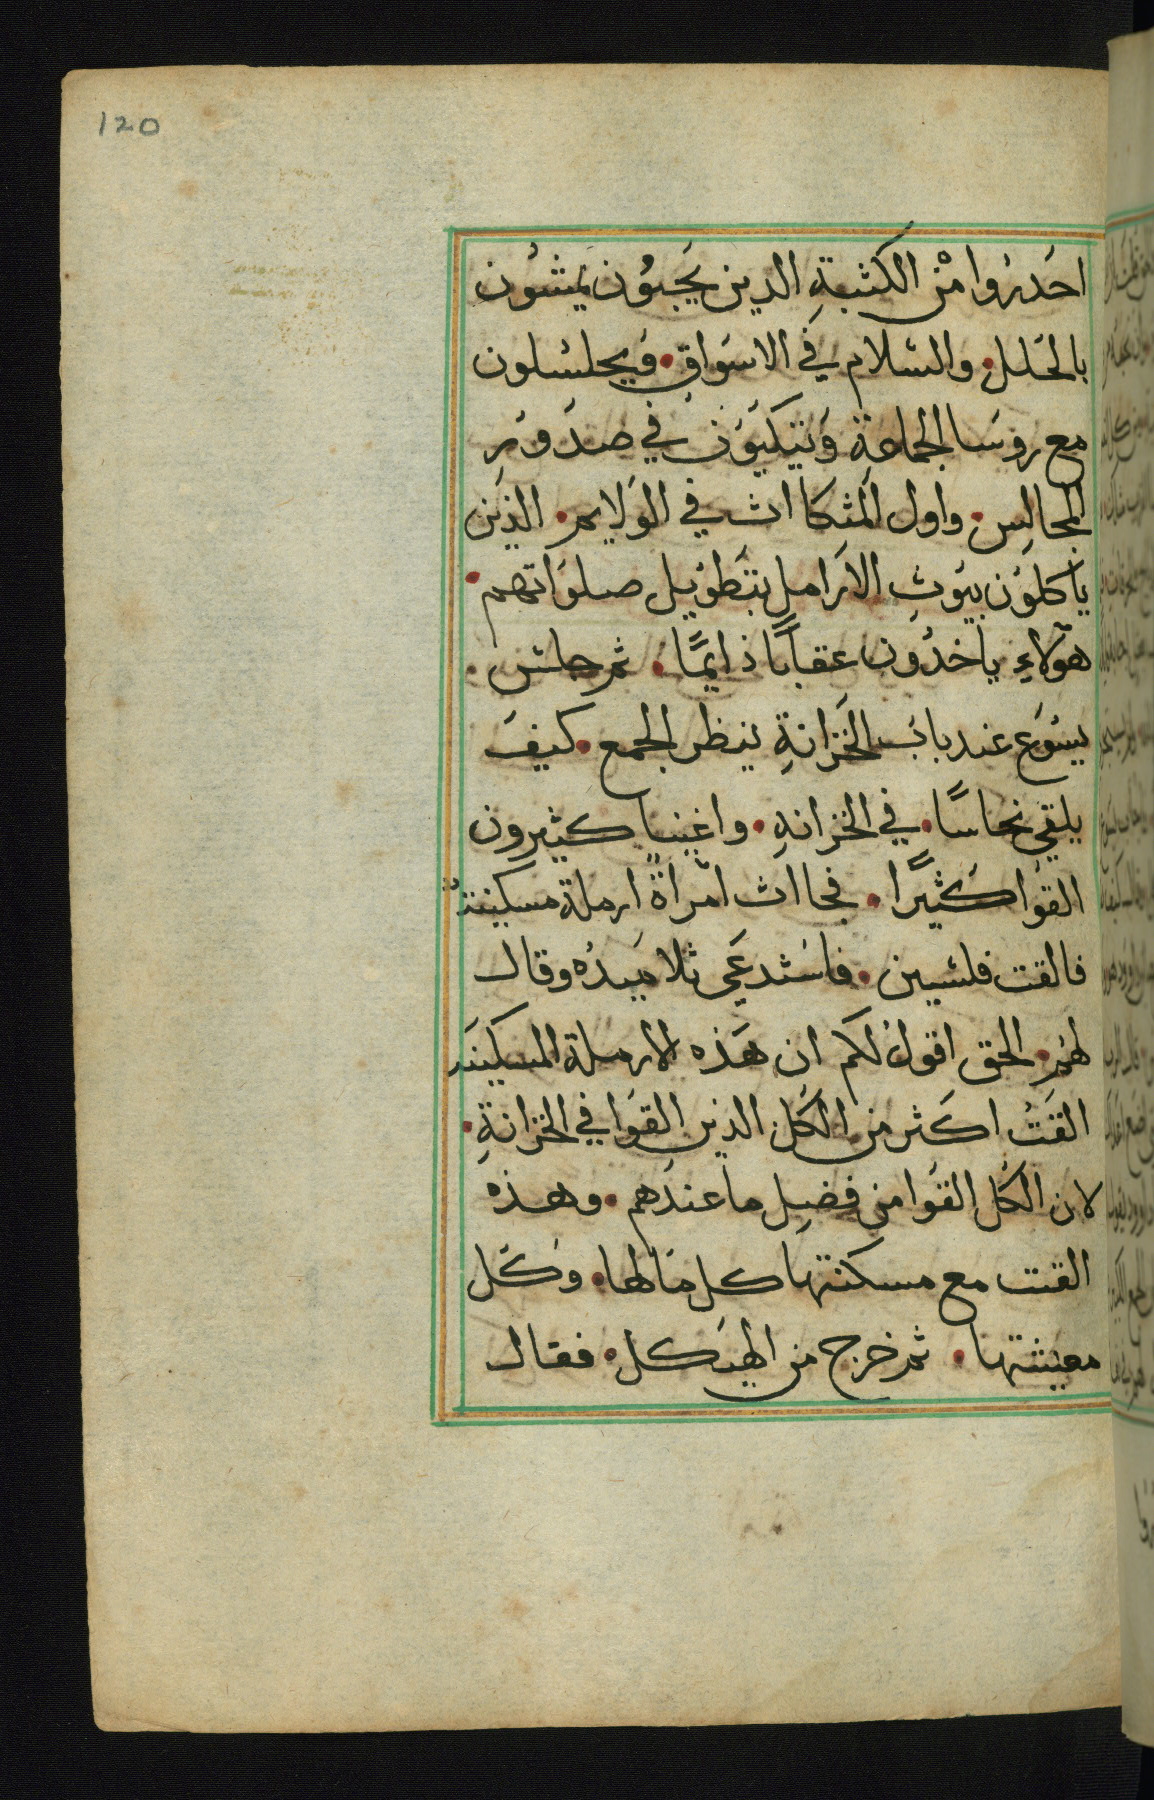 120
احَدرُوا مْن الكَتبةِ الدين يَجبوُن يمَشُون
بالحَلل • والسَلام في الاسَواق • وَيجلسُلون
مع روسَا الجماعة وَيتكيَون في صدَور
المجالِس • واول المَتكاات في الوَلايم • الذيَن
ياَكلوَن بيَوت الارَامل بتَطوَيل صلوَاتهم •
هوَلاءِ ياخدُون عقاباً دَايمًا • ثم جلسَ •
يسَوَع عند بابَ الخَزانةِ ينظر الجمع • كيفَ
يلقي نحاسًا • في الخزانهِ • واغنيا كثيرون
القوَا كثيًرا • فجاات امراةً ارملة مسكينةٌ
فالقت فلسَين • فاسَتدعَي تلاميَدُه وقال
لهَم • الحق اقولُ لكم ان هَذه الارملة المسكينَه
القَتُ اكَثر من الكل الدين القوَا في الخزانةِ •
لان الكُل القوَا من فضِل ما عندَهم • وهذه
القت مع مسكنتهَا كل مَالها • وَكُل
معيشتها • ثم خرج من الهيَكل • فقال